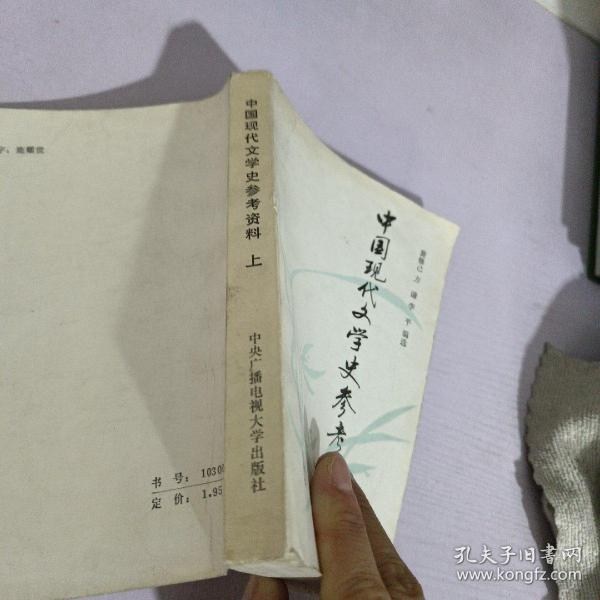 中国现代文学史参考资料 上
中央广播电视大学出版社
中国现代文学史参考
编选
书 号: 1030
定 价: 1.95
孔夫子旧书网
www.kongfz.com